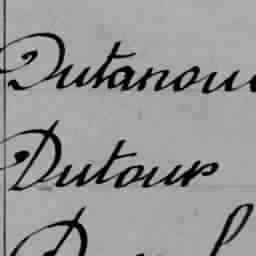 Dutanou
Dutour